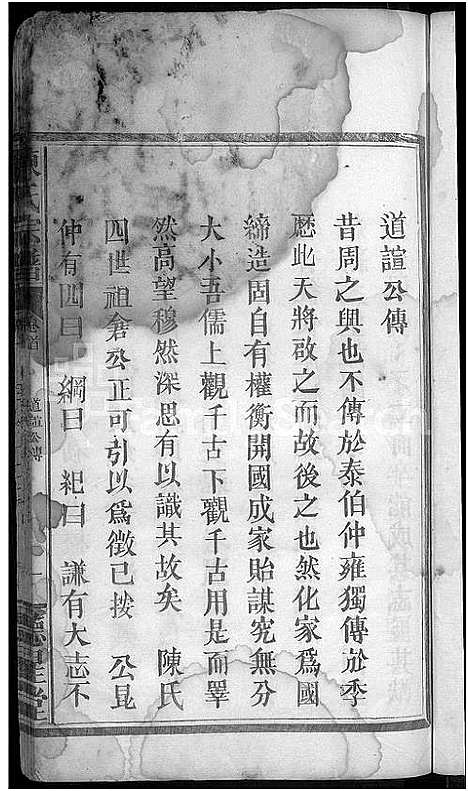 道諠公傳
昔周之興也不傳於泰伯仲雍獨傳於季
歷此天將啟之而故後之也然化家為國
締造固自有權衡開國成家貽謀究無分
大小吾儒上觀千古下觀千古用是而睪
然高望穆然深思有以識其故矣 陳氏
四世祖倉公正可引以為徵已按 公昆
仲有四曰 綱曰 紀曰 謙有大志不
陳氏宗譜
卷首
道諠公傳